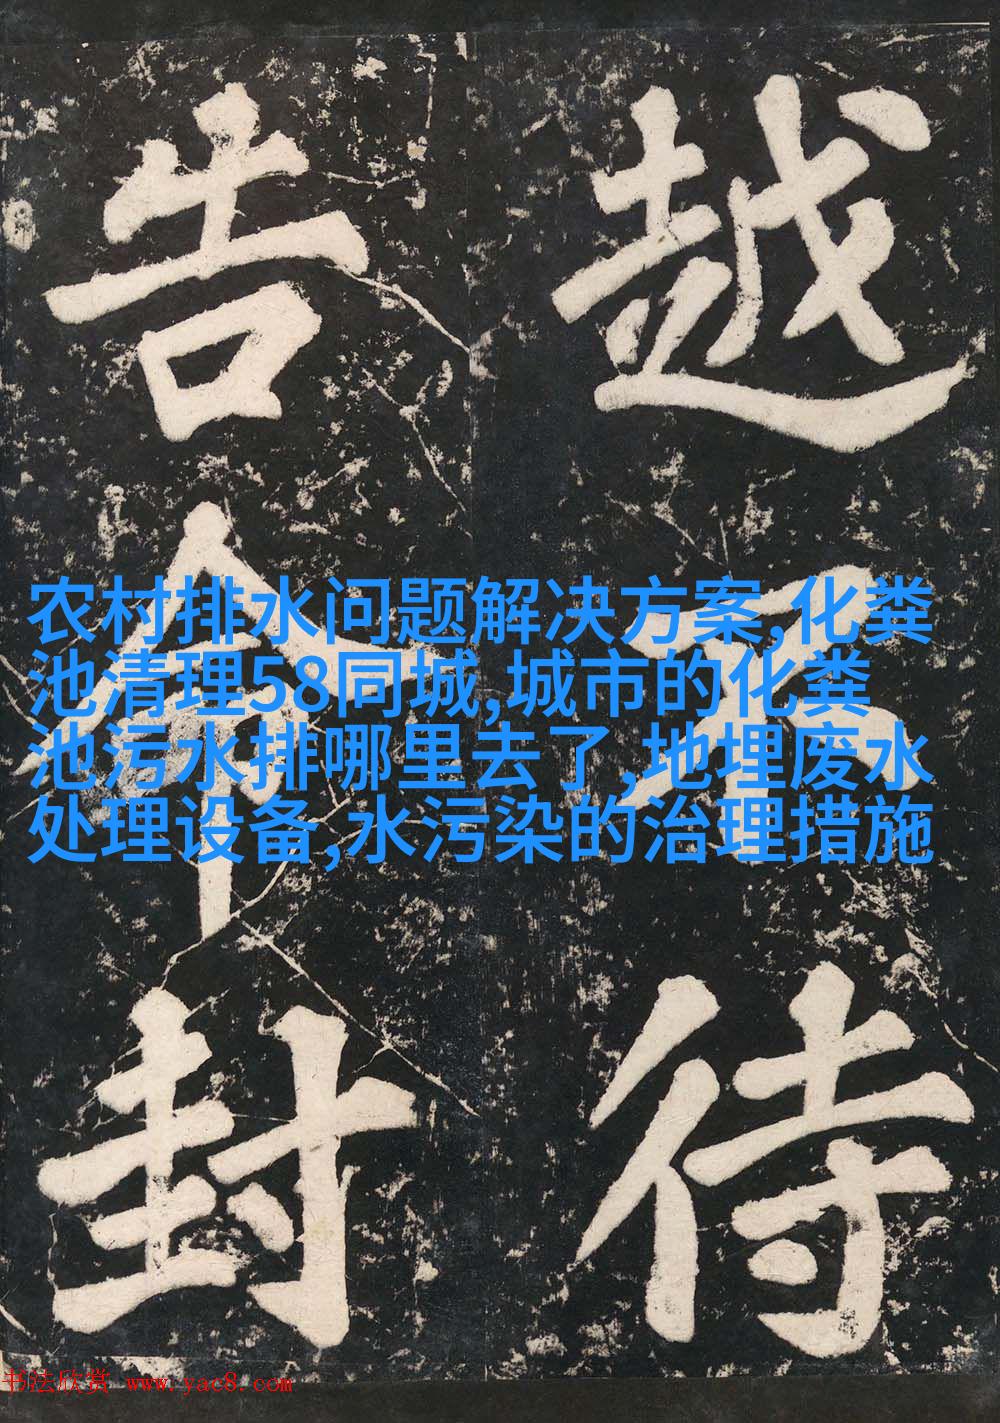 越不待
告命封
农村排水问题解决方案,化粪
池清理58同城,城市的化粪
池污水排哪里去了,地埋废水
处理设备,水污染的治理措施
书法欣赏 www.yac8.com